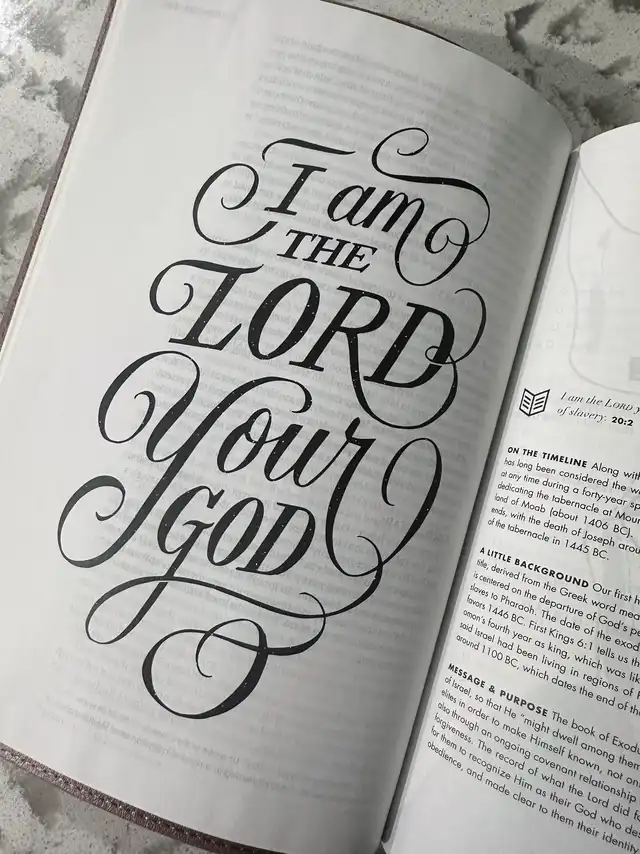 I am
THE
LORD
Your
GOD
I am the LORD y
of slavery. 20:2
ON THE TIMELINE Along with
has long been considered the w
at any time during a forty-year sp
dedicating the tabernacle at Mou
land of Moab (about 1406 BC).
ends, with the death of Joseph arou
of the tabernacle in 1445 BC.
A LITTLE BACKGROUND Our first h
title, derived from the Greek word mea
is centered on the departure of God's pe
slaves to Pharaoh. The date of the exod
favors 1446 BC. First Kings 6:1 tells us th
omon's fourth year as king, which was lik
said Israel had been living in regions of
around 1100 BC, which dates the end of the
MESSAGE & PURPOSE The book of Exodu
of Israel, so that He "might dwell among them
elites in order to make Himself known, not onl
also through an ongoing covenant relationship
forgiveness. The record of what the Lord did fo
for them to recognize Him as their God who des
obedience, and made clear to them their identity